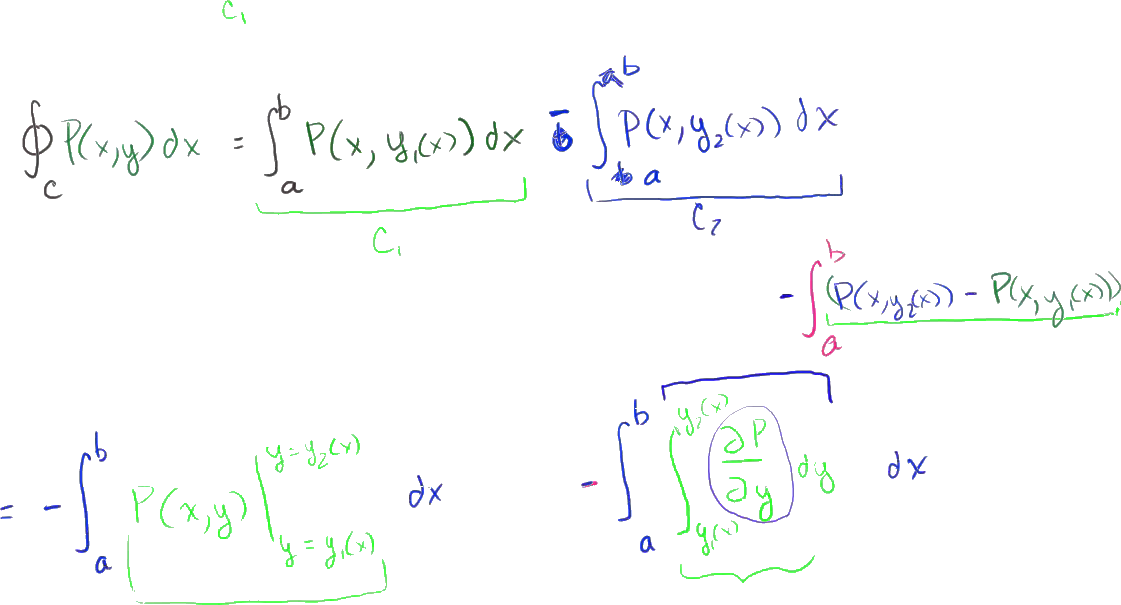 C₁
∮_C P(x,y) dx = ∫_a^b P(x, y₁(x)) dx - ∫_a^b P(x, y₂(x)) dx
C₁ C₂
- ∫_a^b (P(x,y₂(x)) - P(x,y₁(x)))
= - ∫_a^b P(x,y) |_{y = y₁(x)}^{y = y₂(x)} dx - ∫_a^b ∫_{y₁(x)}^{y₂(x)} ∂P/∂y dy dx